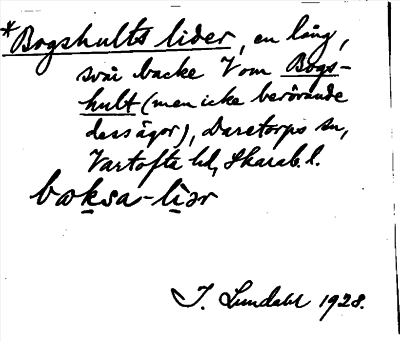 *Bogshults lider, en lång,
svår backe V om Bogs-
hult (men icke berörande
dess ägor), Daretorps sn,
Vartofta hd, Skarab. l.
bœksa-liər
J. Lundahl 1928.